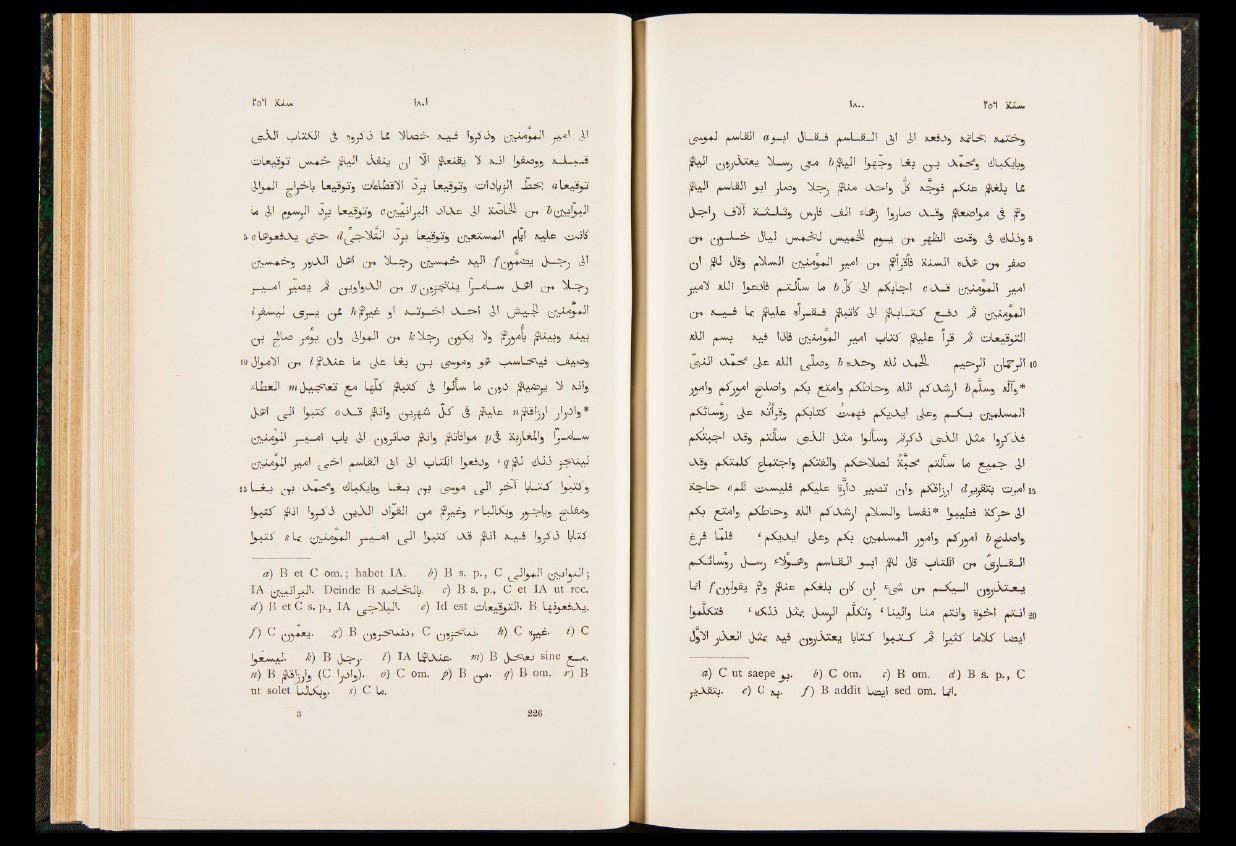 سنة ٢٥٦ ١٨٠٠
وختمه بخاتمه ودفعه الى ابى القسم فقال ابو a القاسم لموسى
وبايكباك ومحمّد بن بغا وجّهوا اليهم b معى رسلا يعتذرون اليهم
مما بلغهم عنكم فوجّه كلّ واحد منهم رجلا وصار ابو القاسم اليهم
وهم فى مواضعهم وقد صاروا زهاء الف فارس وثلثة آلاف راجل
5 وذلك فى وقت الظهر من يوم الخميس لخمس ليال خلون من
صفر من هذه السنة فأقرأهم امير المؤمنين السلام وقال لهم ان
امير المؤمنين قد c اجابكم الى كلّ b ما سألتم فادعوا الله لامير
المؤمنين ثم دفع كتابهم الى كاتبهم فقرأه عليهم بما فيه من
التوقيعات ثم قرأ عليهم كتاب امير المؤمنين فاذا فيه بسم الله
10 الرحمان الرحيم الحمد لله وحده b وصلّى الله على محمّد النبىّ
*وآله وسلم b ارشدكم الله وحاطكم وامتع بكم واصلح اموركم وامور
المسلمين بكم وعلى ايديكم فهمت كتابكم وقرأته على رؤسائكم
فذكروا مثل الذى ذكرتم وسألوا مثل الذى سألتم وقد اجبتكم
الى جميع ما سألتم محبّة لصلاحكم والفتكم واجتماع كلمتكم وقد
15 امرت بتقرير d ارزاقكم وان تصير دارّة عليكم فليست لكم e حاجة
الى حركة فطيبوا *نفسا والسلام ارشدكم الله وحاطكم وامتع بكم
واصلح b اموركم وامور المسلمين بكم وعلى ايديكم ، فلمّا فرغ
القارئ من الكتاب قال لهم ابو القاسم وهؤلاء رسل رؤسائكم
يعتذرون اليكم من شىء ان كان بلغكم عنهم وهم يقولون f انما
20 انتم اخوة وانتم منا والينا ، وتكلّم الرسل بمثل ذلك ، فتكلّموا
ايضا كلاما كثيرا ثم كتبوا كتابا يعتذرون فيه بمثل العذر الأوّل
a) C ut saepe بو. b) C om. c) B om. d) B s. p., C
بتقدير. e) C به. f) B addit ايضا sed om. انما.
سنة ٢٥٦ ١٨٠١
الى امير المؤمنين وذكروا فيه خصالا مما ذكروه فى الكتاب الذى
قبله ووصفوا انه لا يقنعهم الّا ان ينفذ اليهم خمس توقيعات
توقيعا a بحطّ الزيادات وتوقيعا بردّ الاقطاعات وتوقيعا باخراج الموالى
البوّابين b من الخاصّة الى عداد البرانيّين c وتوقيعا بردّ الرسوم الى ما
5 كانت عليه ايّام المستعين وتوقيعا بردّ التلاجىّ d حتى يدفعوها e
الى رجل يضمّون f اليه خمسين رجلا من اهل الدور وخمسين
رجلا من اهل سامرّا يتنجزون g من الدواوين ثم يصيّر امير
المؤمنين الجيش الى احد اخوته او غيرهم h ممن يرى ليسفر i
بينه وبينهم بأمورهم ولا يكون رجلا k من الموالى وان يؤمر صالح بن
10 وصيف فيحاسب هو وموسى بن بغا على ما عندهم l من الاموال
وانه لا يرضيهم دون ما سألوا فى كتبهم كلّها مع تعجيل m العطاء
*وادرار ارزاقهم n عليهم فى كلّ شهرين وانهم قد o كتبوا الى اهل
سامرّا والمغاربة فى p موافاتهم وانهم صائرون الى باب امير المؤمنين
لينجز ذلك لهم q ، ودفعوا الكتاب الى ابى القاسم اخى امير المؤمنين
15 وكتبوا كتابا آخر الى موسى بن بغا وبايكباك ومحمّد بن بغا
ومفلح وياجور وبكالبا r وغيرهم من القوّاد الذين ذكروا انهم كتبوا
كتابا ذكروا فيه انهم قد كتبوا الى امير المؤمنين بما s كتبوا
a) B et C om.; habet IA. b) B s. p., C
IA البرانيين. Deinde B بالخاصه. c) B s. p., C et IA ut rec.
d) B et C s. p., IA التلاجى. e) Id est التوقيعات. B
f) C g) B C h) C غيره. i) C
k) B رجل. l) IA عندهما. m) B sine مع.
n) B وارزاقهم (C وادروا). o) C om. p) B من. q) B om. r) B
ut solet s) C ما.
3 226